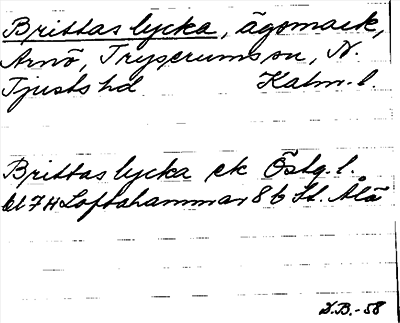 Brittas lycka, ägomark,
Arnö, Tryserums sn, N.
Tjusts hd Kalm. l.
Brittas lycka ek Östg. l.
bl 7H Loftahammar 8b St. Ålö
D.B.-58